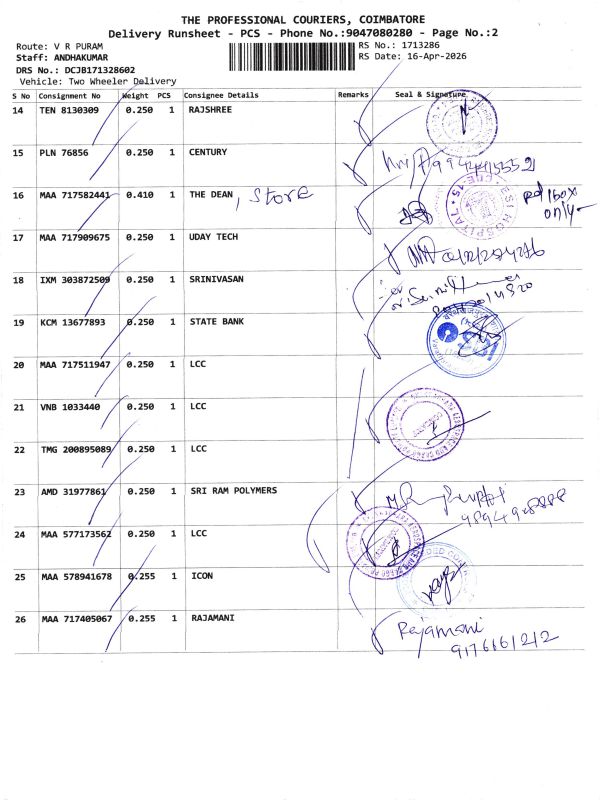 THE PROFESSIONAL COURIERS, COIMBATORE
Delivery Runsheet - PCS - Phone No.:9047080280 - Page No.:2
Route: V R PURAM
RS No.: 1713286
Staff: ANDHAKUMAR
RS Date: 16-Apr-2026
DRS No.: DCJB171328602
Vehicle: Two Wheeler Delivery
S No Consignment No Weight PCS Consignee Details Remarks Seal & Signature
14 TEN 8130309 0.250 1 RAJSHREE
15 PLN 76856 0.250 1 CENTURY
16 MAA 717582441 0.410 1 THE DEAN, Store
ESI HOSPITAL
only
17 MAA 717909675 0.250 1 UDAY TECH
18 IXM 303872509 0.250 1 SRINIVASAN
19 KCM 13677893 0.250 1 STATE BANK
20 MAA 717511947 0.250 1 LCC
21 VNB 1033440 0.250 1 LCC
22 TMG 200895089 0.250 1 LCC
23 AMD 31977861 0.250 1 SRI RAM POLYMERS
24 MAA 577173562 0.250 1 LCC
25 MAA 578941678 0.255 1 ICON
26 MAA 717405067 0.255 1 RAJAMANI
Rajamani
9176661212